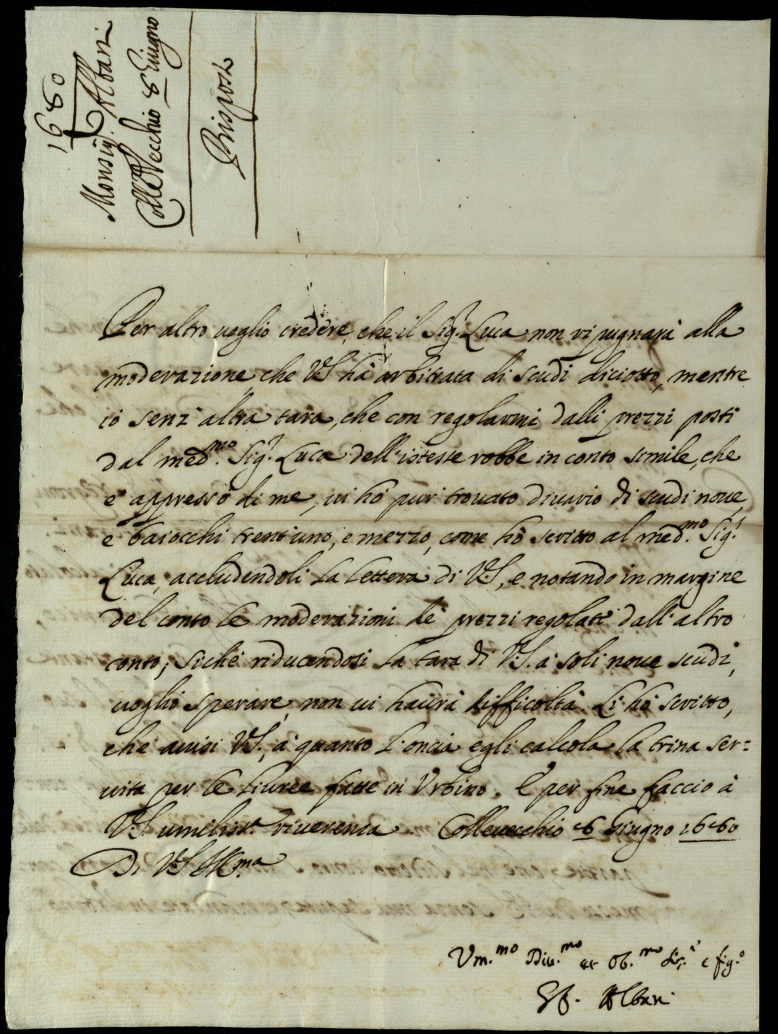 1680
Monsig.r Albani
Colle Vecchio 8 Giugno
Risposta
Per altro voglio credere, che il Sig.r Luca non ripugnarà alla
moderazione che VS hà arbitrata di scudi diciotto, mentre
io senz'altra tara, che con regolarmi dalli prezzi posti
dal med.mo Sig.r Luca dell'istesse robbe in conto simile, che
è appresso di me, vi hò pur trovato divario di scudi nove,
e baiocchi trent'uno, e mezzo, come hò scritto al med.mo Sig.r
Luca, accludendoli la lettera di VS, e notando in margine
del conto le moderazioni de prezzi regolati dall'altro
conto; sichè riducendosi la tara di VS. à soli nove scudi,
voglio sperare, non vi haurà difficoltà. Li hò scritto,
che avvisi VS, à quanto l'oncia egli calcola la trina ser=
vita per le livree fatte in Urbino. E per fine faccio à
VS umiliss.a riverenza Collevecchio 8 Giugno 1680
Di VS Ill.ma
Um.mo Div.mo et Ob.mo e fig.o
Albani